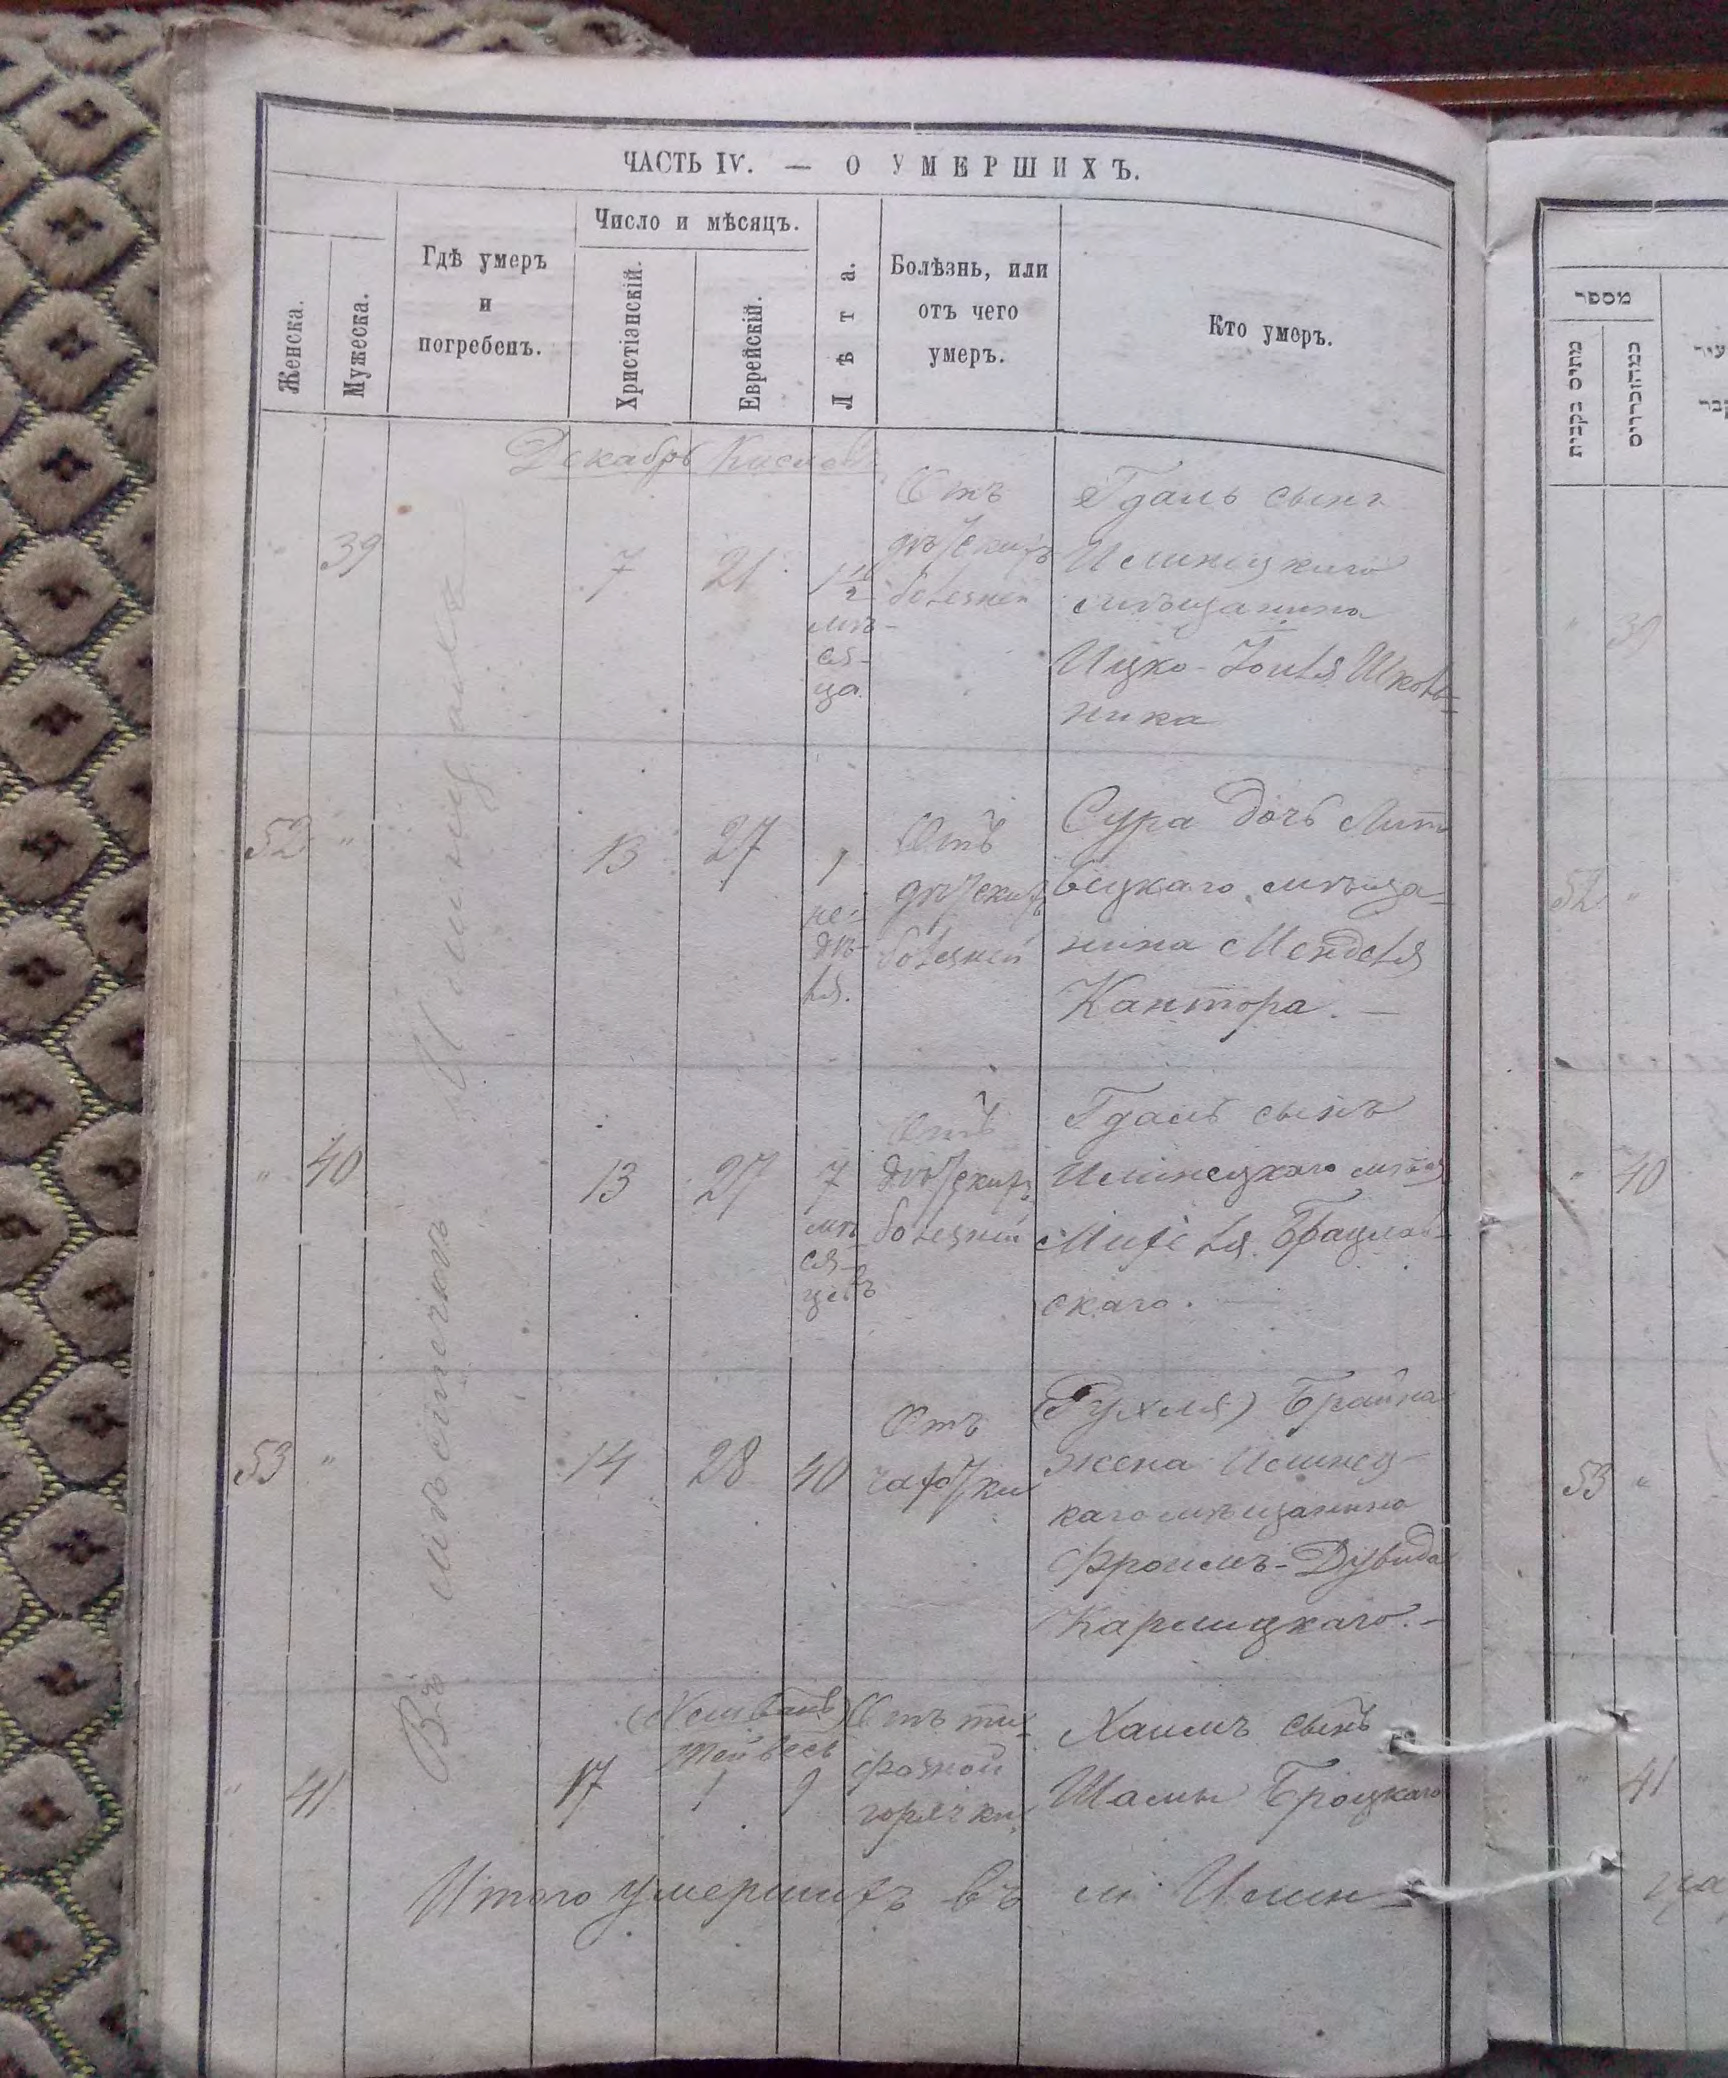 ЧАСТЬ IV. — О УМЕРШИХЪ.
Женска.
Мужеска.
Гдѣ умеръ
и
погребенъ.
Число и мѣсяцъ.
Христіанскій.
Еврейскій.
Лѣта.
Болѣзнь, или
отъ чего
умеръ.
Кто умеръ.
Декабрь Кислев
Въ мѣстечкѣ
" 39 7 21 1 1/2
мѣ-
ся-
ца
Отъ
дѣтскихъ
болезней
Гдаль сынъ
Илинецкаго
мѣщанина
Ицко-Зоиля Школь-
ника
52 " 13 27 1
не-
дѣ-
ля.
Отъ
дѣтскихъ
болезней
Сура дочь Лит
вецкаго мѣща-
нина Менделя
Кантора. —
" 40 13 27 7
мѣ-
ся-
цевъ
Отъ
дѣтскихъ
болезней
Гдаль сынъ
Илинецкаго мѣщ
Михеля Брацлав-
скаго. —
53 " 14 28 40
Отъ
чахотки
(Рухля) Брайна
жена Илинец-
каго мѣщанина
Фроимъ-Дувида
Карлицкаго. —
" 41 17
Тейвесъ
1 9
Отъ ти-
фозной
горячки
Хаимъ сынъ
Шамы Броцкаго
Итого умершихъ въ м Илин-
מספר
מהיום הקבות
מהזכרים
עיר
קבר
" 39
52 "
" 40
53 "
" 41
ца